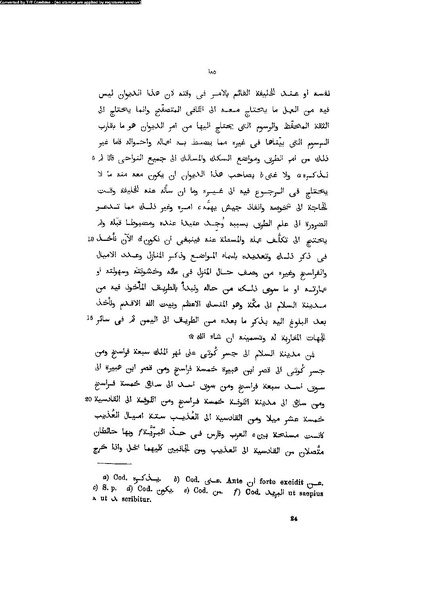 Converted by Tiff Combine - (no stamps are applied by registered version)
١٨٥
نفسه او عند الخليفة القائم بالامر فى وقته لان هذا الديوان ليس
فيه من العمل ما يحتاج معه الى الكافى المتصفّح وانما يحتاج الى
الثقة المتحفّظ والرسوم التى يحتاج اليها من امر الديوان هو ما يقارب
الرسوم التى بيّنّاها فى غيره مما يضبط به اعماله واحواله فاما غير
ذلك من امر الطرق ومواضع السكك والمسالك الى جميع النواحى فانّا 5
نذكره a ولا غنى b بصاحب هذا الديوان ان يكون معه منه ما لا
يحتاج فى الرجوع فيه الى غيره وما ان سأله عنه الخليفة وقت
الحاجة الى شخوصه وانفاذ جيش يهمّه c امره وغير ذلك مما تدعو
الضرورة الى علم الطرق بسببه وُجد عتيدا عنده ومضبوطا قبله ولم
يحتج الى تكلّف عمله والمسئلة عنه فينبغى ان نكون d الآن نأخذ 10
فى ذكر ذلك وتعديده باسماء المواضع وذكر المنازل وعدد الاميال
والفراسخ وغيره من وصف حال المنزل فى مائه وخشونته وسهولته او
عمارته او ما سوى ذلك من حاله ولنبدأ بالطريق المأخوذ فيه من
مدينة السلام الى مكّة وهو المنسك الاعظم وبيت الله الاقدم ونأخذ
بعد البلوغ اليه بذكر ما بعده من الطريق الى اليمن ثم فى سائر 15
الجهات المقاربة له وتسمينه ان شاء الله ❊
فمن مدينة السلام الى جسر كُوثى e على نهر الملك سبعة فراسخ ومن
جسر كُوثى الى قصر ابن هبيرة خمسة فراسخ ومن قصر ابن هبيرة الى
سوق اسد سبعة فراسخ ومن سوق اسد الى ساهى خمسة فراسخ
ومن ساهى الى مدينة الكوفة خمسة فراسخ ومن الكوفة الى القادسية 20
خمسة عشر ميلا ومن القادسية الى العُذيب ستة اميال العُذيب
كانت مسلحة بين العرب وفارس فى حدّ البرّيّة f وبها حائطان
متّصلان من القادسية الى العذيب ومن الجانبين كليهما نخل واذا خرج
a) Cod. يذكره. b) Cod. غنى. Ante ان forto excidit عن.
c) S. p. d) Cod. يكون. e) Cod. من. f) Cod. البريد ut saepius